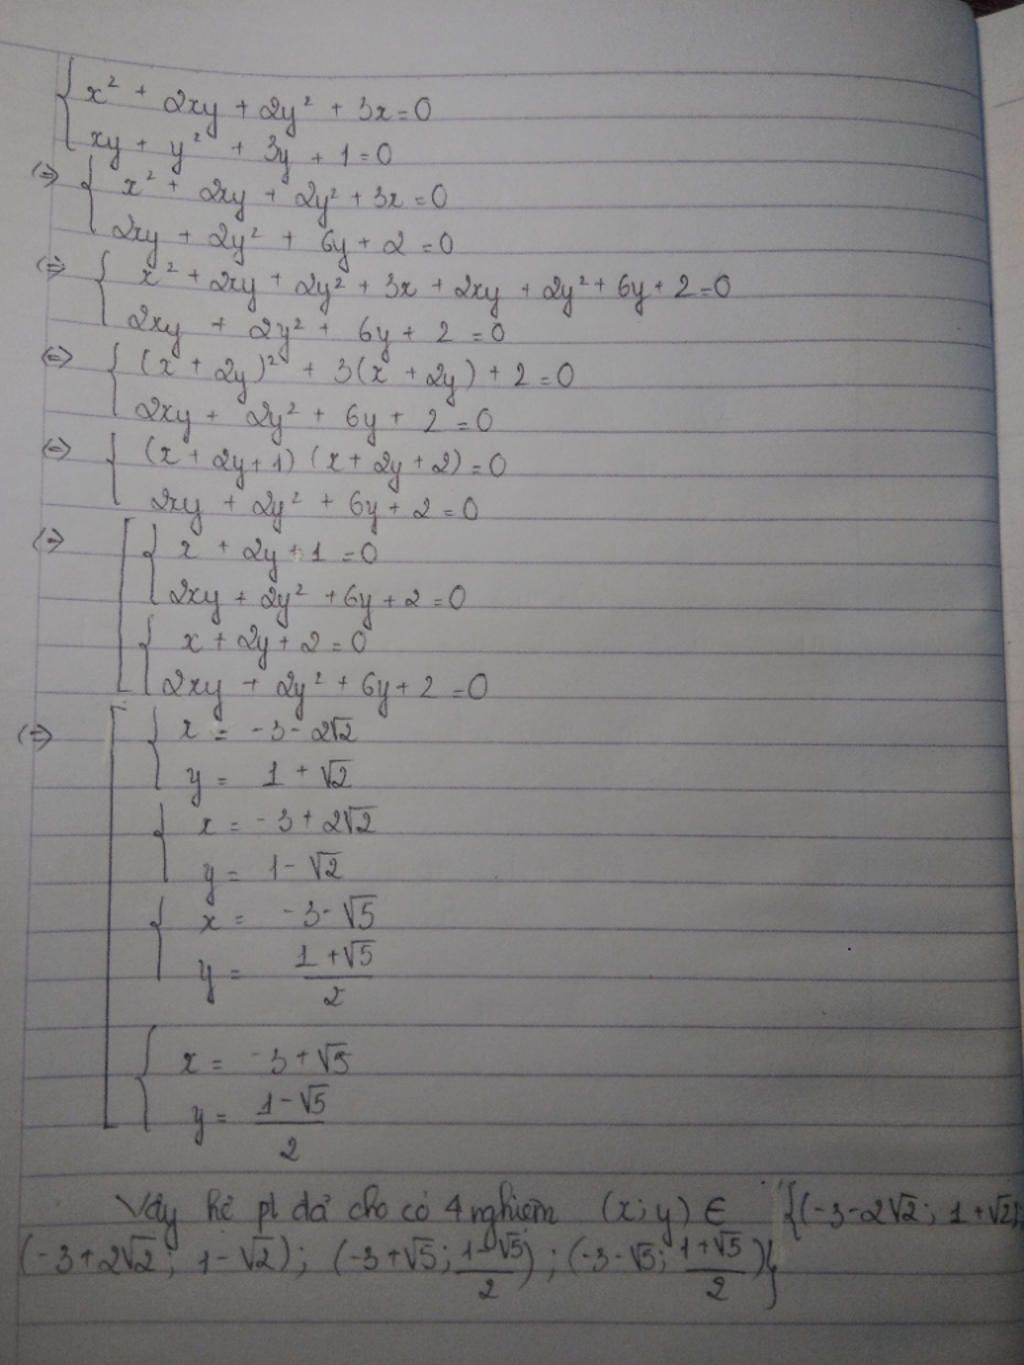 { x² + 2xy + 2y² + 3x = 0
xy + y² + 3y + 1 = 0
(=) { x² + 2xy + 2y² + 3x = 0
2xy + 2y² + 6y + 2 = 0
(=) { x² + 2xy + 2y² + 3x + 2xy + 2y² + 6y + 2 = 0
2xy + 2y² + 6y + 2 = 0
(=) { (x + 2y)² + 3(x + 2y) + 2 = 0
2xy + 2y² + 6y + 2 = 0
(=) { (x + 2y + 1) (x + 2y + 2) = 0
2xy + 2y² + 6y + 2 = 0
(=) [ { x + 2y + 1 = 0
2xy + 2y² + 6y + 2 = 0
{ x + 2y + 2 = 0
2xy + 2y² + 6y + 2 = 0
(=) [ { x = -3 - 2√2
y = 1 + √2
{ x = -3 + 2√2
y = 1 - √2
{ x = -3 - √5
y = (1 + √5)/2
{ x = -3 + √5
y = (1 - √5)/2
Vậy hệ pt đã cho có 4 nghiệm (x; y) ∈ {(-3 - 2√2; 1 + √2);
(-3 + 2√2; 1 - √2); (-3 + √5; (1 - √5)/2); (-3 - √5; (1 + √5)/2)}